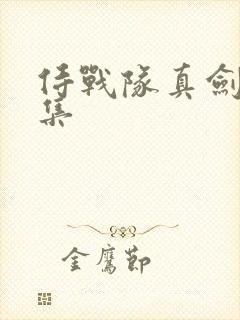 侍戰隊真劍
集
金鷹節